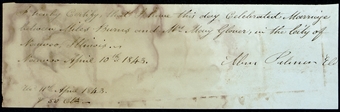 I hereby Certify, that I have this day Celebrated Marriage
between Miles Burns and Mrs Mary Glover, in the City of
Nauvoo, Illinois.
Nauvoo April 10th 1843.
April 1843.